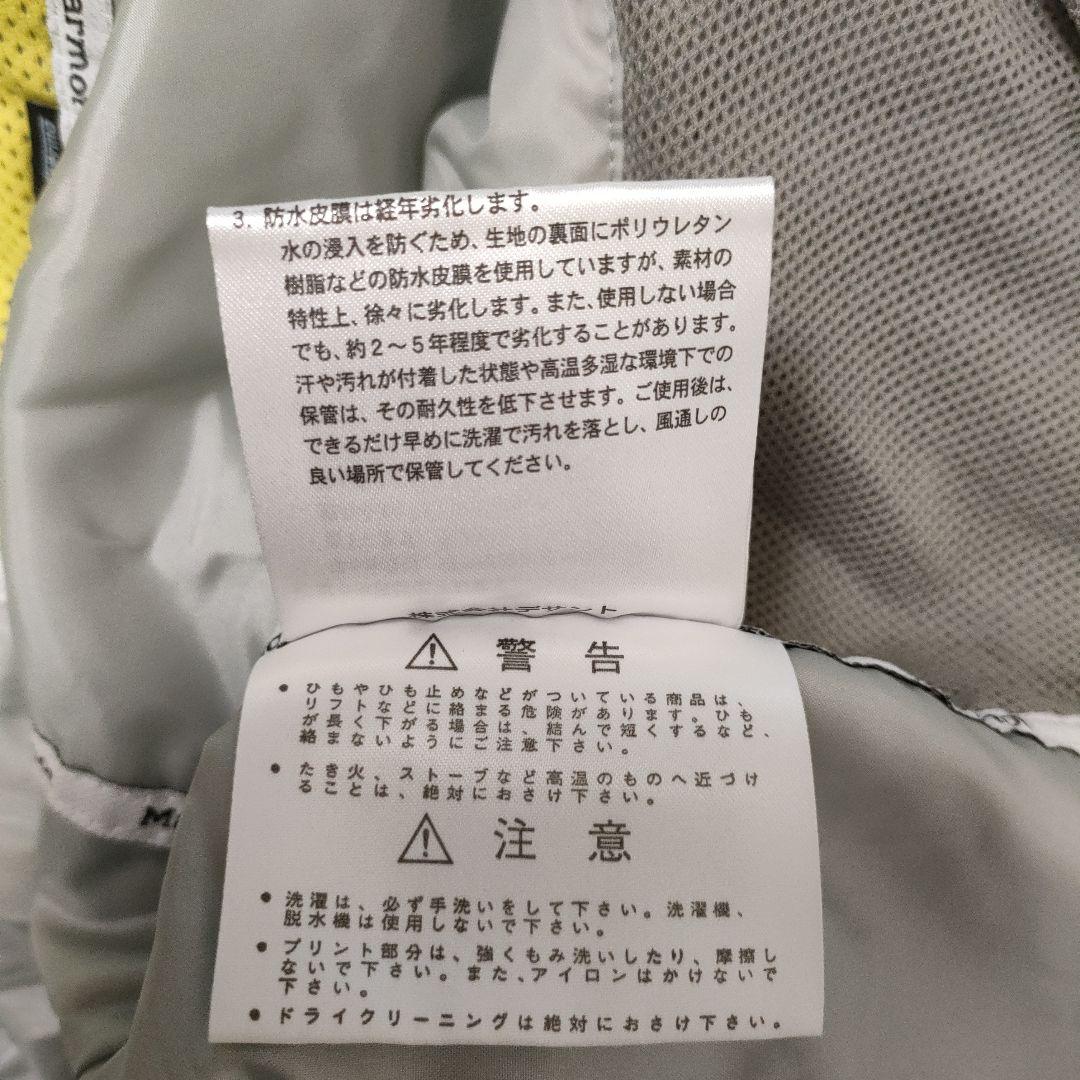 armot
3. 防水皮膜は経年劣化します。
水の浸入を防ぐため、生地の裏面にポリウレタン
樹脂などの防水皮膜を使用していますが、素材の
特性上、徐々に劣化します。また、使用しない場合
でも、約2〜5年程度で劣化することがあります。
汗や汚れが付着した状態や高温多湿な環境下での
保管は、その耐久性を低下させます。ご使用後は、
できるだけ早めに洗濯で汚れを落とし、風通しの
良い場所で保管してください。
株式会社デサント
⚠ 警告
• ひもやひも止めなどがついている商品は、
リフトなどに絡まる危険があります。ひも
が長く下がる場合は、結んで短くするなど、
絡まないようにご注意下さい。
• たき火、ストーブなど高温のものへ近づけ
ることは、絶対におさけ下さい。
⚠ 注意
• 洗濯は、必ず手洗いをして下さい。洗濯機、
脱水機は使用しないで下さい。
• プリント部分は、強くもみ洗いしたり、摩擦し
ないで下さい。また、アイロンはかけないで
下さい。
• ドライクリーニングは絶対におさけ下さい。